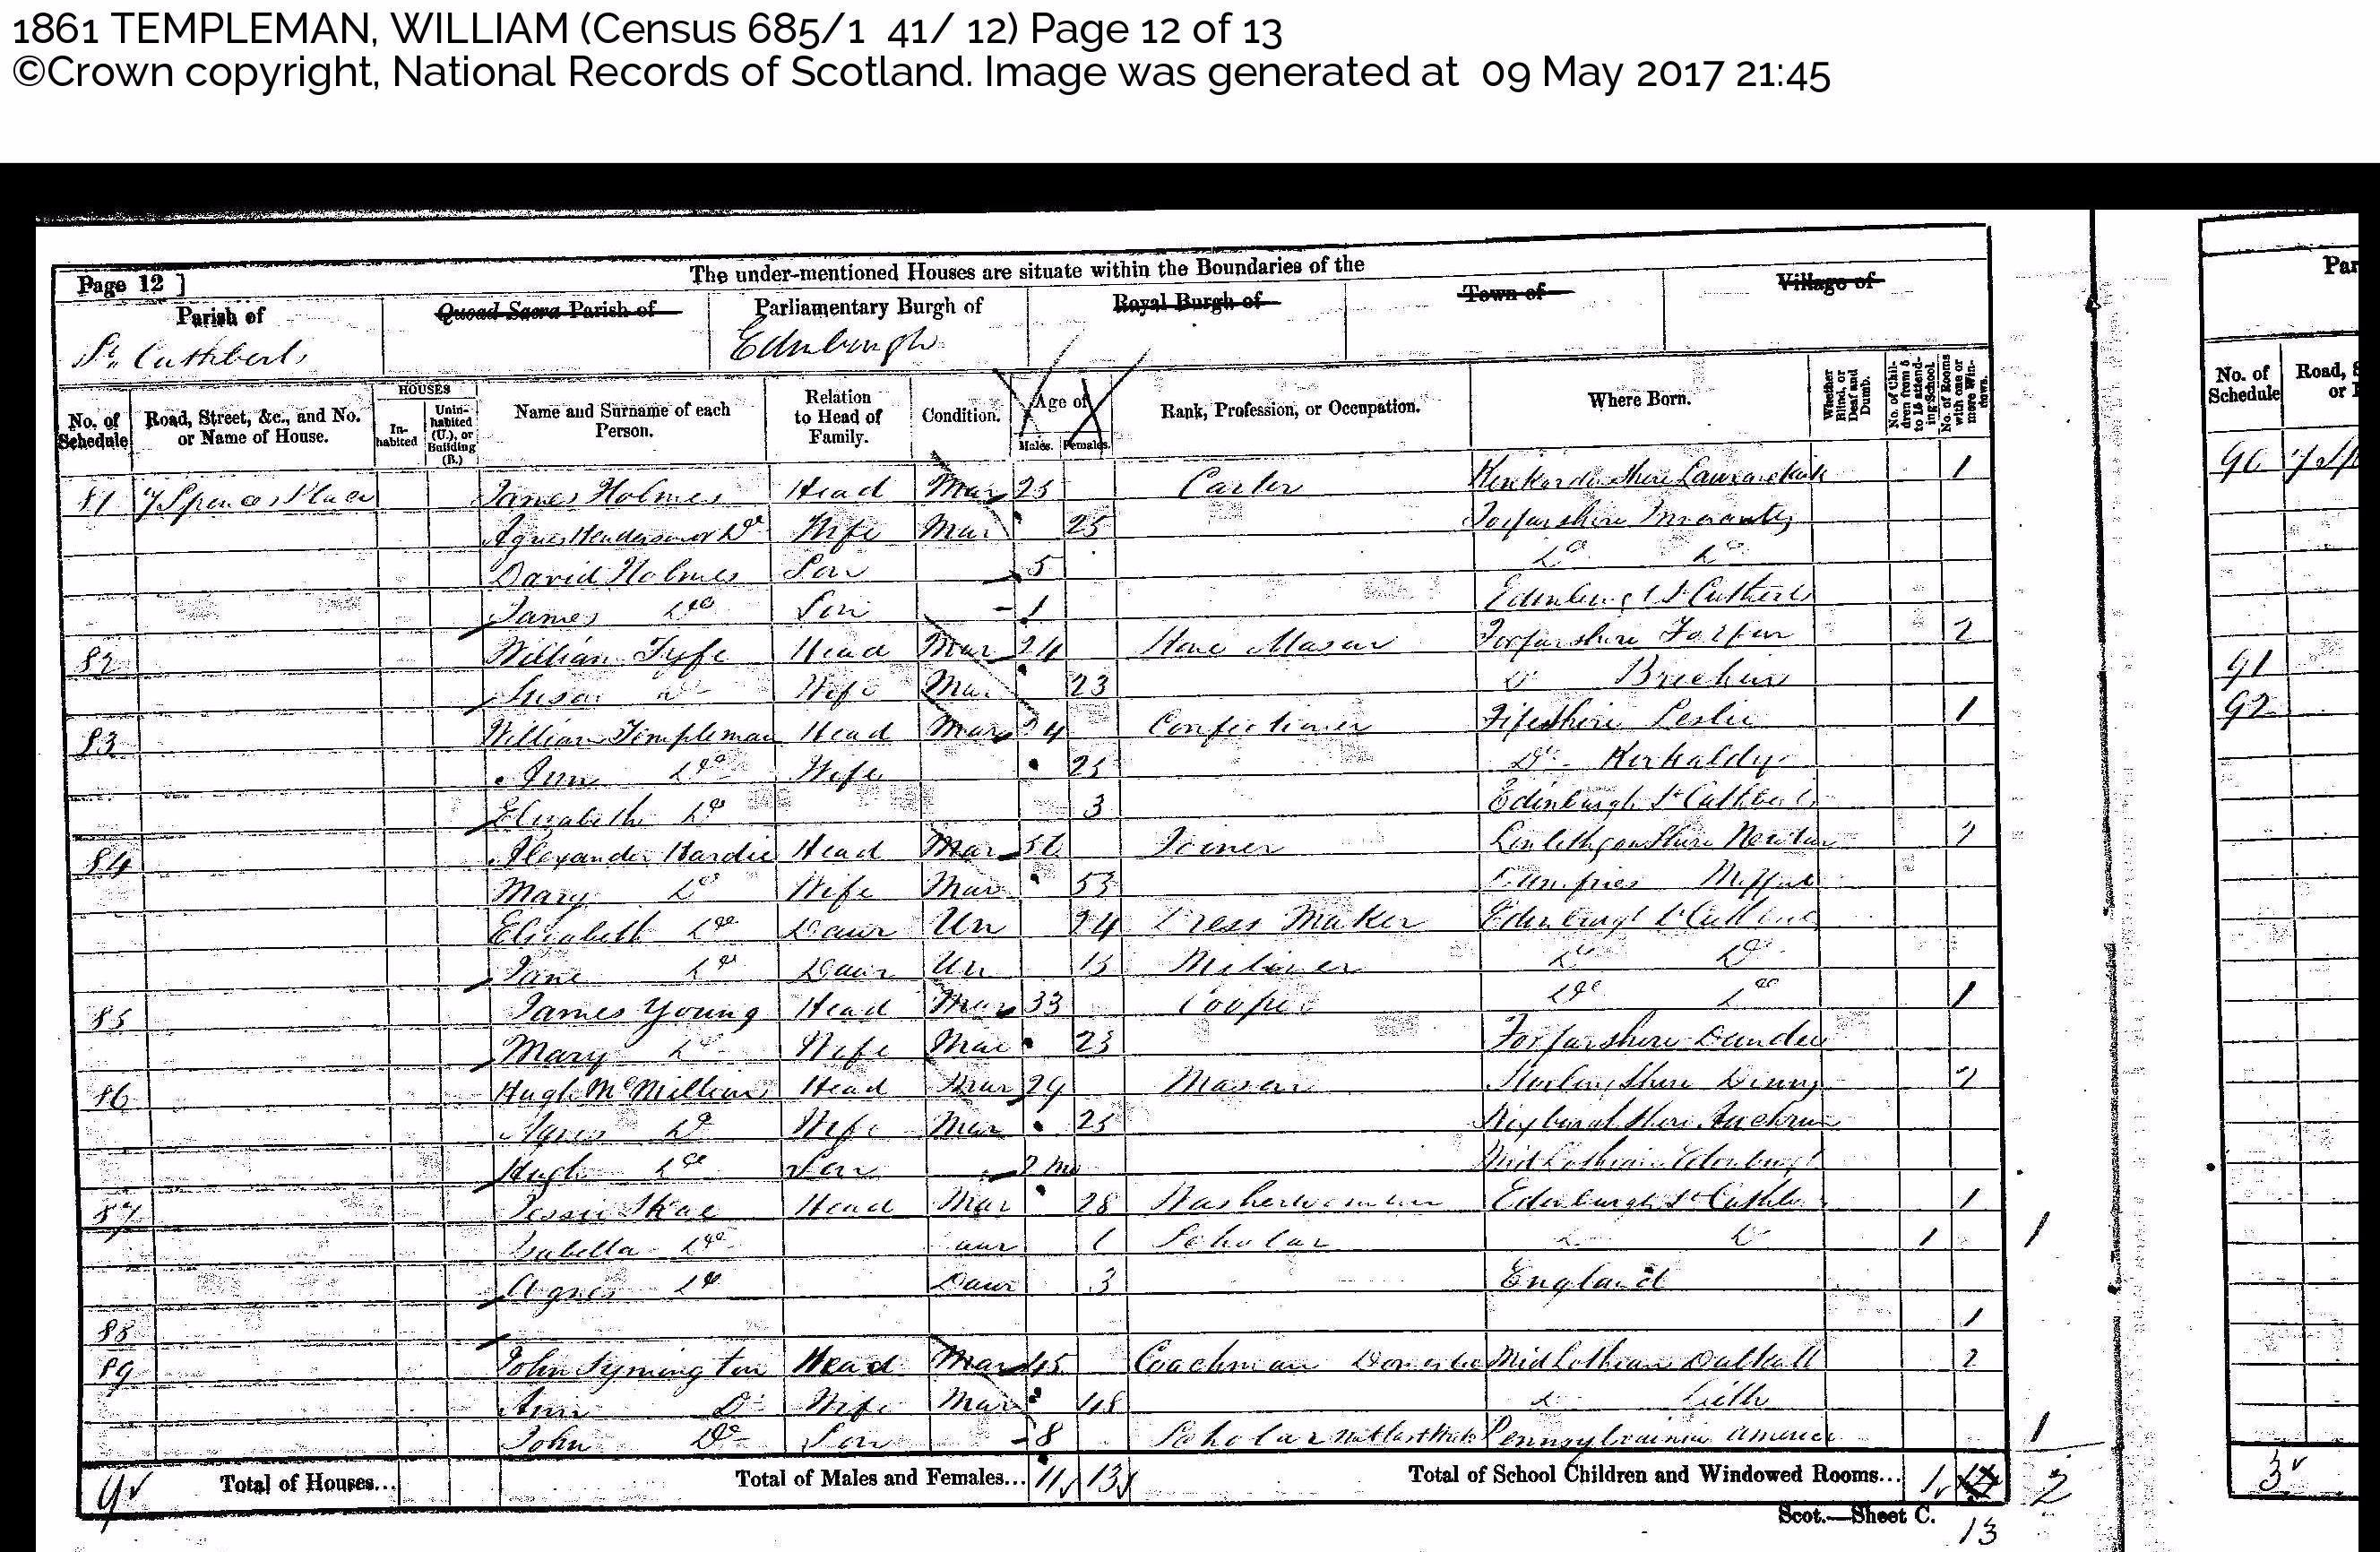 1861 TEMPLEMAN, WILLIAM (Census 685/1 41/ 12) Page 12 of 13
©Crown copyright, National Records of Scotland. Image was generated at 09 May 2017 21:45
Page 12 ]
The under-mentioned Houses are situate within the Boundaries of the
Parish of Quoad Sacra Parish of Parliamentary Burgh of Royal Burgh of Town of Village of
St. Cuthberts Edinburgh
No. of Schedule Road, Street, &c., and No. or Name of House. HOUSES Inhabited Uninhabited (U.), or Building (B.) Name and Surname of each Person. Relation to Head of Family. Condition. Age of Males. Females. Rank, Profession, or Occupation. Where Born. Whether Blind, or Deaf and Dumb. No. of Children from 5 to 15 attending School. No. of Rooms with one or more Windows.
81 7 Spences Place James Holmes Head Mar 25 Carter 1
Agnes Henderson or Do Wife Mar 25 Forfarshire
David Holmes Son 5 Do Do
James Do Son 1 Edinburgh St Cuthberts
82 William Fyfe Head Mar 24 Stone Mason Forfarshire Forfar 2
Susan Do Wife Mar 23 Do Brechin
83 William Templeman Head Mar 24 Confectioner Fifeshire Leslie 1
Ann Do Wife 25 Do Kirkaldy
Elizabeth Do 3 Edinburgh St Cuthberts
84 Alexander Hardie Head Mar Joiner Linlithgowshire 2
Mary Do Wife Mar 53 Dumfries Moffat
Elizabeth Do Daur Un 24 Dress Maker Edinburgh St Cuthbert
Jane Do Daur Un Do Do
85 James Young Head Mar 33 Cooper Do Do 1
Mary Do Wife Mar 23 Forfarshire Dundee
86 Hugh McMillan Head Mar 29 Mason Stirlingshire Denny 2
Agnes Do Wife Mar 25 Roxburghshire Ancrum
Hugh Do Son 2 Mo Midlothian Edinburgh
87 Jessie Head Mar 28 Washerwoman Edinburgh St Cuthbert 1
Isabella Do aur Scholar Do Do 1 1
Agnes Do Daur 3 England
88 1
89 John Symington Head Mar 45 Coachman Domestic Midlothian Dalkeith 2
Ann Do Wife Mar 48 Do Leith
John Do Son 8 Scholar Pennsylvania America 1
9 Total of Houses... Total of Males and Females... 11 13 Total of School Children and Windowed Rooms... 1 2
Scot.—Sheet C.
13
Par
No. of Schedule Road, S or
90 7 Sp
91
92
3